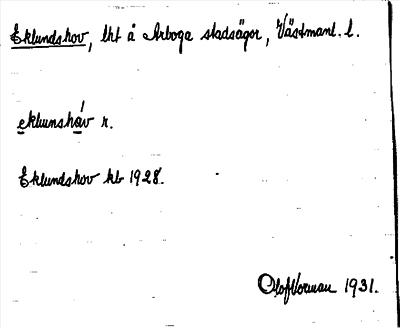 Eklundshov, lht å Arboga stadsägor, Västmanl. l.
eklunsháv r.
Eklundshov kb 1928.
Olof Norman 1931.